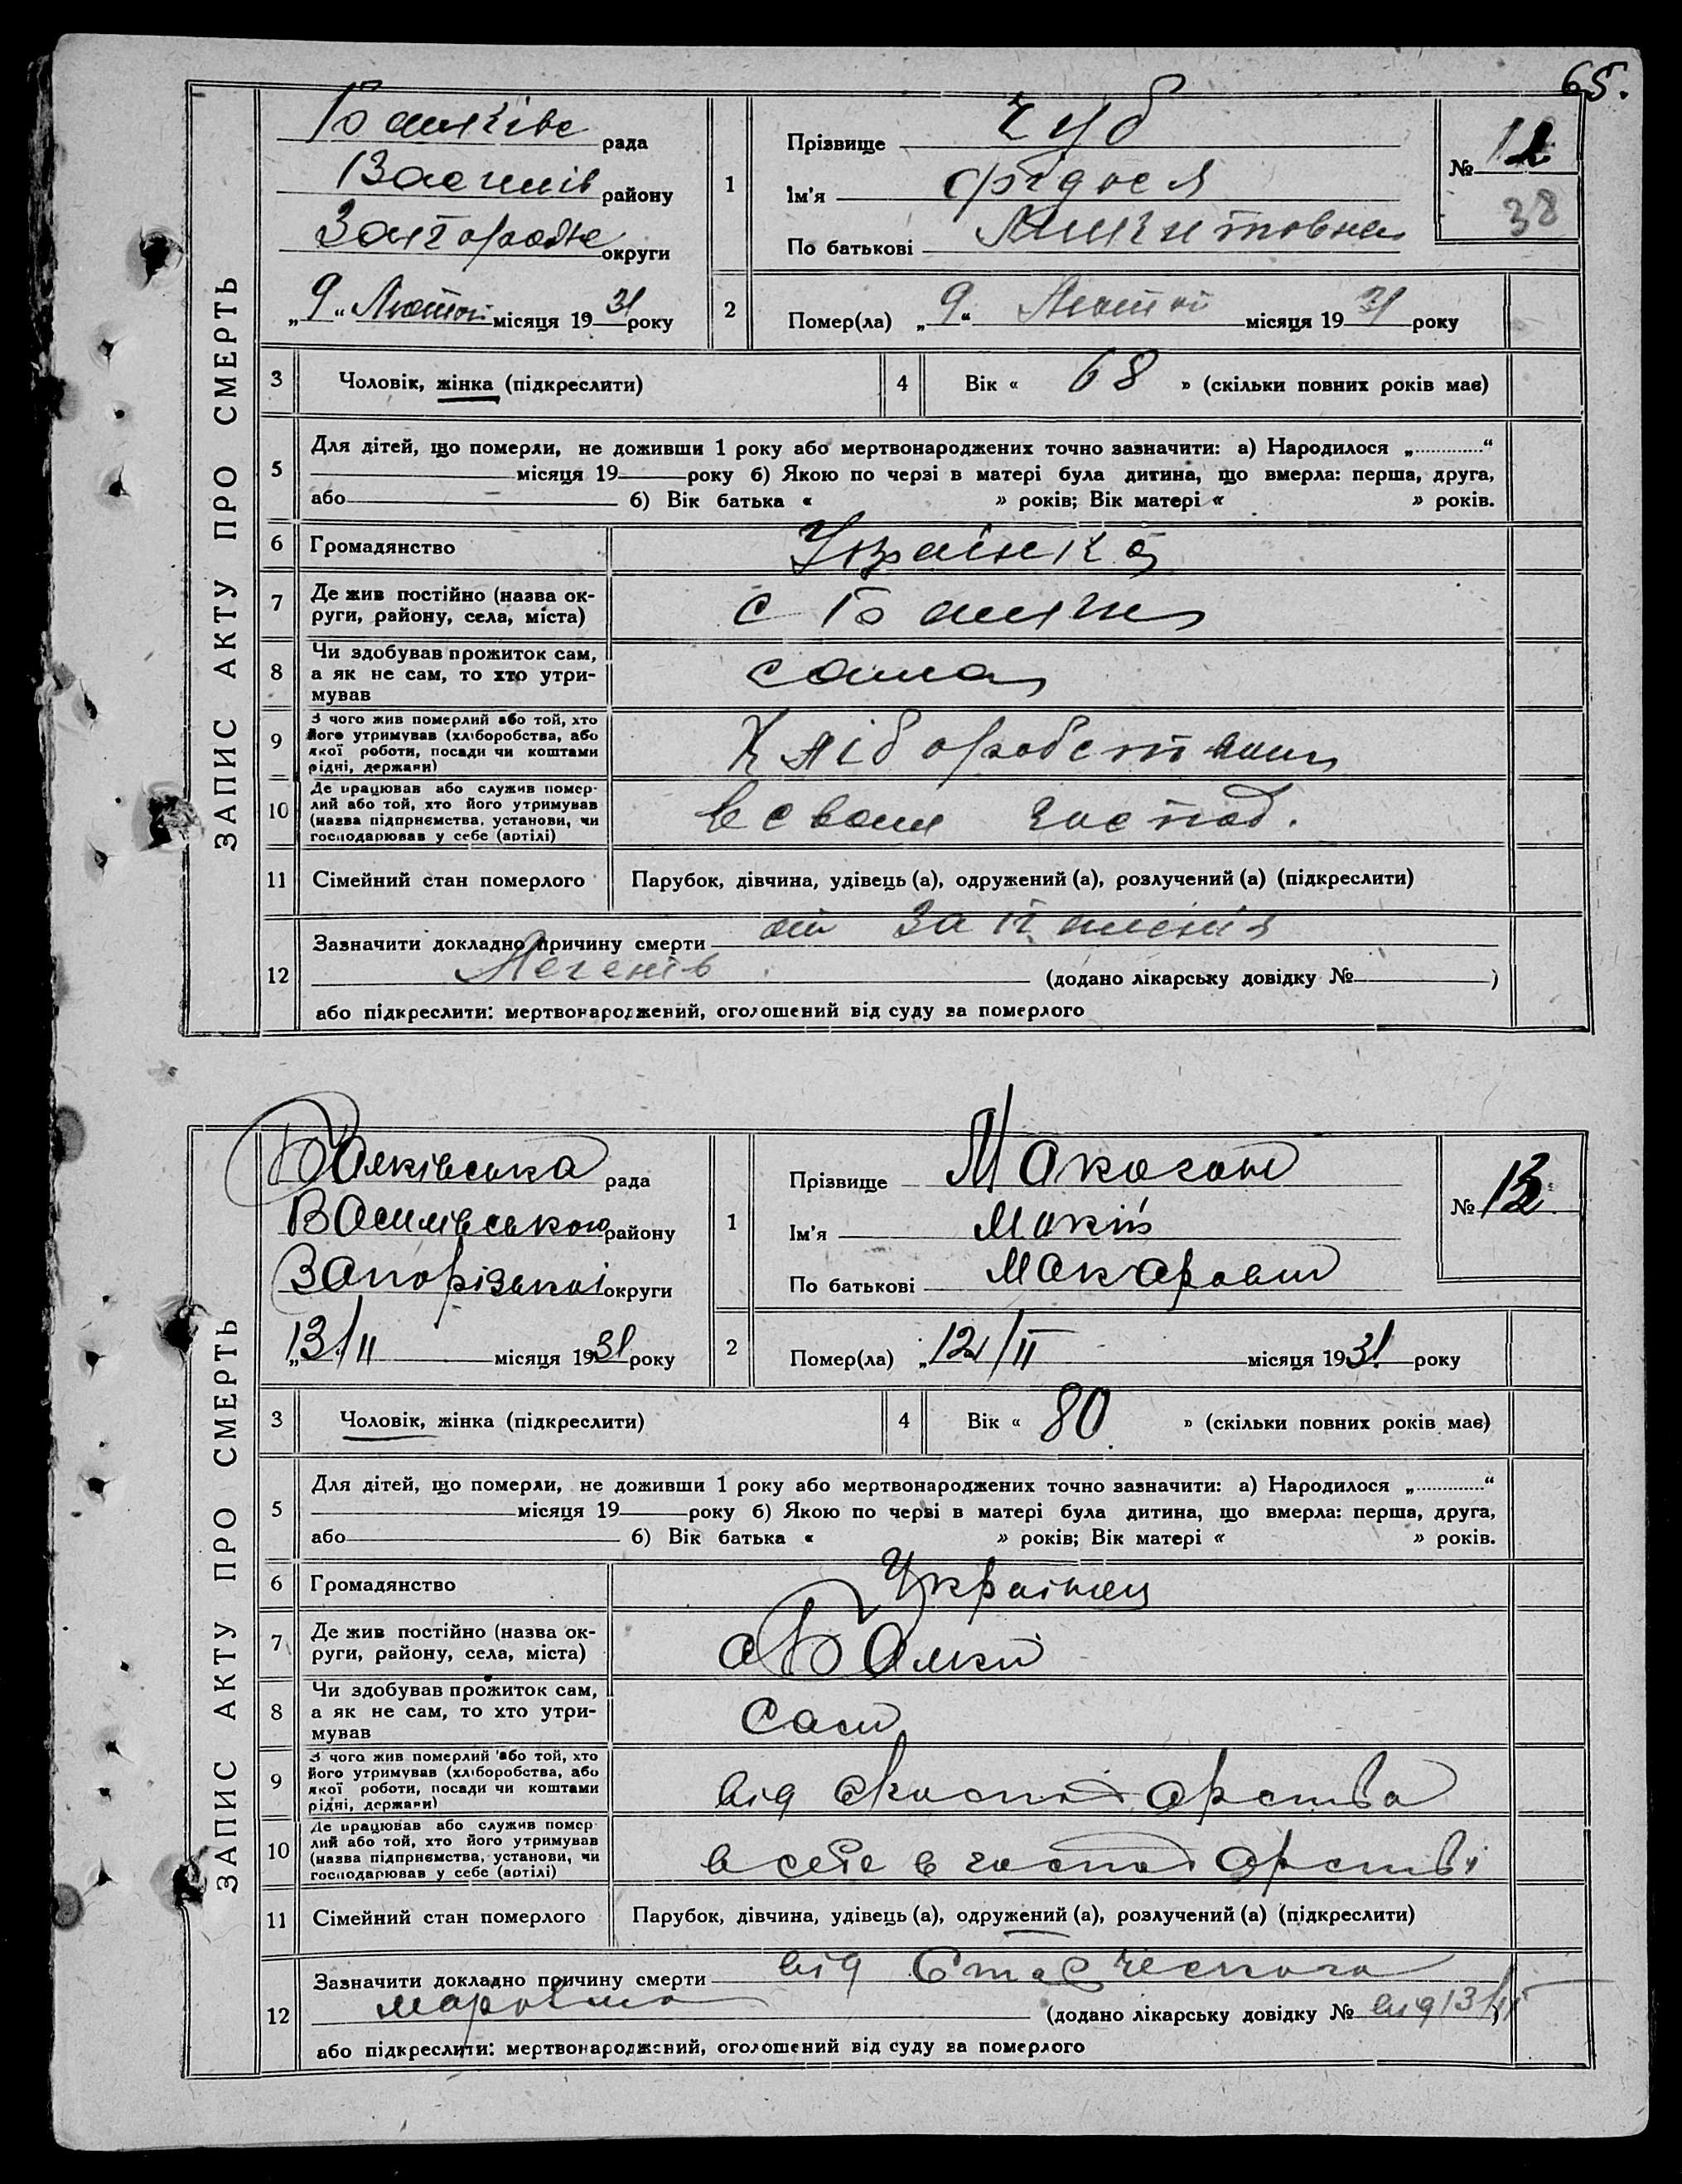 65.
ЗАПИС АКТУ ПРО СМЕРТЬ
Балківс рада
Василів району
Запорожс округи
„9“ Лютого місяця 1931 року
1
Прізвище Чуб
Ім'я
По батькові Никитовна
№ 12
38
2
Помер(ла) „9“ Лютого місяця 1931 року
3
Чоловік, жінка (підкреслити)
4
Вік « 68 » (скільки повних років має)
5
Для дітей, що померли, не доживши 1 року або мертвонароджених точно зазначити: а) Народилося „ “
місяця 19 року б) Якою по черзі в матері була дитина, що вмерла: перша, друга,
або б) Вік батька « » років; Вік матері « » років.
6
Громадянство Українка
7
Де жив постійно (назва ок-
руги, району, села, міста)
с Балки
8
Чи здобував прожиток сам,
а як не сам, то хто утри-
мував
сама
9
З чого жив померлий або той, хто
його утримував (хліборобства, або
якої роботи, посади чи коштами
рідні, держави)
Хліборобством
10
Де працював або служив помер-
лий або той, хто його утримував
(назва підприємства, установи, чи
господарював у себе (артілі)
в своем господ.
11
Сімейний стан померлого
Парубок, дівчина, удівець (а), одружений (а), розлучений (а) (підкреслити)
12
Зазначити докладно причину смерти от запаления
Легенів (додано лікарську довідку № )
або підкреслити: мертвонароджений, оголошений від суду за померлого
ЗАПИС АКТУ ПРО СМЕРТЬ
Балківська рада
Василівського району
Запорізької округи
„13/II місяця 1931 року
1
Прізвище Макогон
Ім'я Мокій
По батькові Макарович
№ 13
2
Помер(ла) „12/II місяця 1931. року
3
Чоловік, жінка (підкреслити)
4
Вік « 80 » (скільки повних років має)
5
Для дітей, що померли, не доживши 1 року або мертвонароджених точно зазначити: а) Народилося „ “
місяця 19 року б) Якою по черзі в матері була дитина, що вмерла: перша, друга,
або б) Вік батька « » років; Вік матері « » років.
6
Громадянство Українец
7
Де жив постійно (назва ок-
руги, району, села, міста)
с Балки
8
Чи здобував прожиток сам,
а як не сам, то хто утри-
мував
Сам
9
З чого жив померлий або той, хто
його утримував (хліборобства, або
якої роботи, посади чи коштами
рідні, держави)
від
10
Де працював або служив помер-
лий або той, хто його утримував
(назва підприємства, установи, чи
господарював у себе (артілі)
в себе в господарстві
11
Сімейний стан померлого
Парубок, дівчина, удівець (а), одружений (а), розлучений (а) (підкреслити)
12
Зазначити докладно причину смерти від Старческого
маразма (додано лікарську довідку № від 13/II )
або підкреслити: мертвонароджений, оголошений від суду за померлого